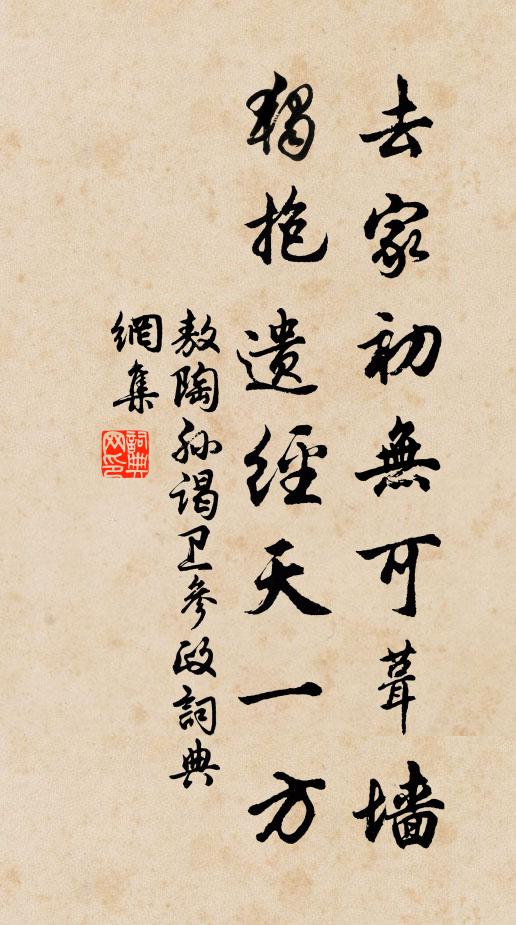 去家初無可葺墙
獨抱遗經天一方
敖陶孙謁卫參政詞典
網集
詞典
网印